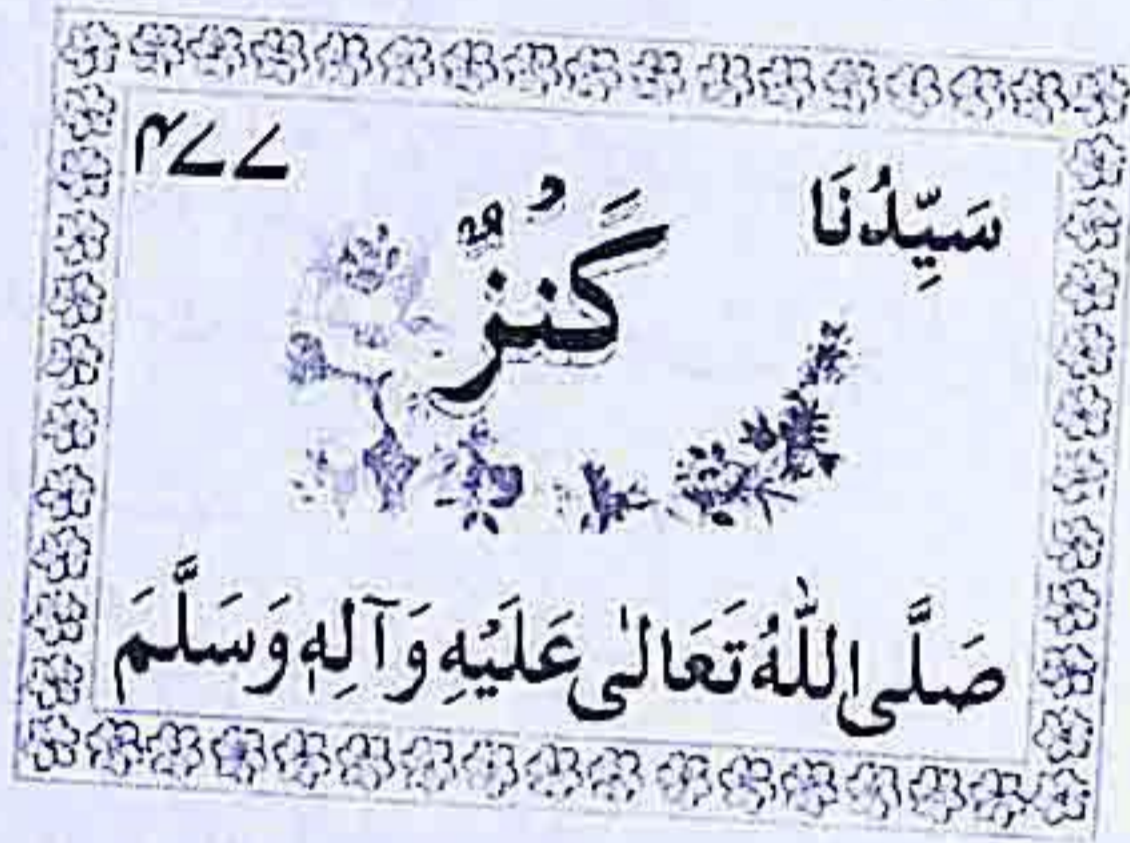 سَيِّدُنَا
۴۷۷
كَنُزٌ
صَلَّى اللّٰهُ تَعَالٰى عَلَيْهِ وَآلِهٖ وَسَلَّمَ